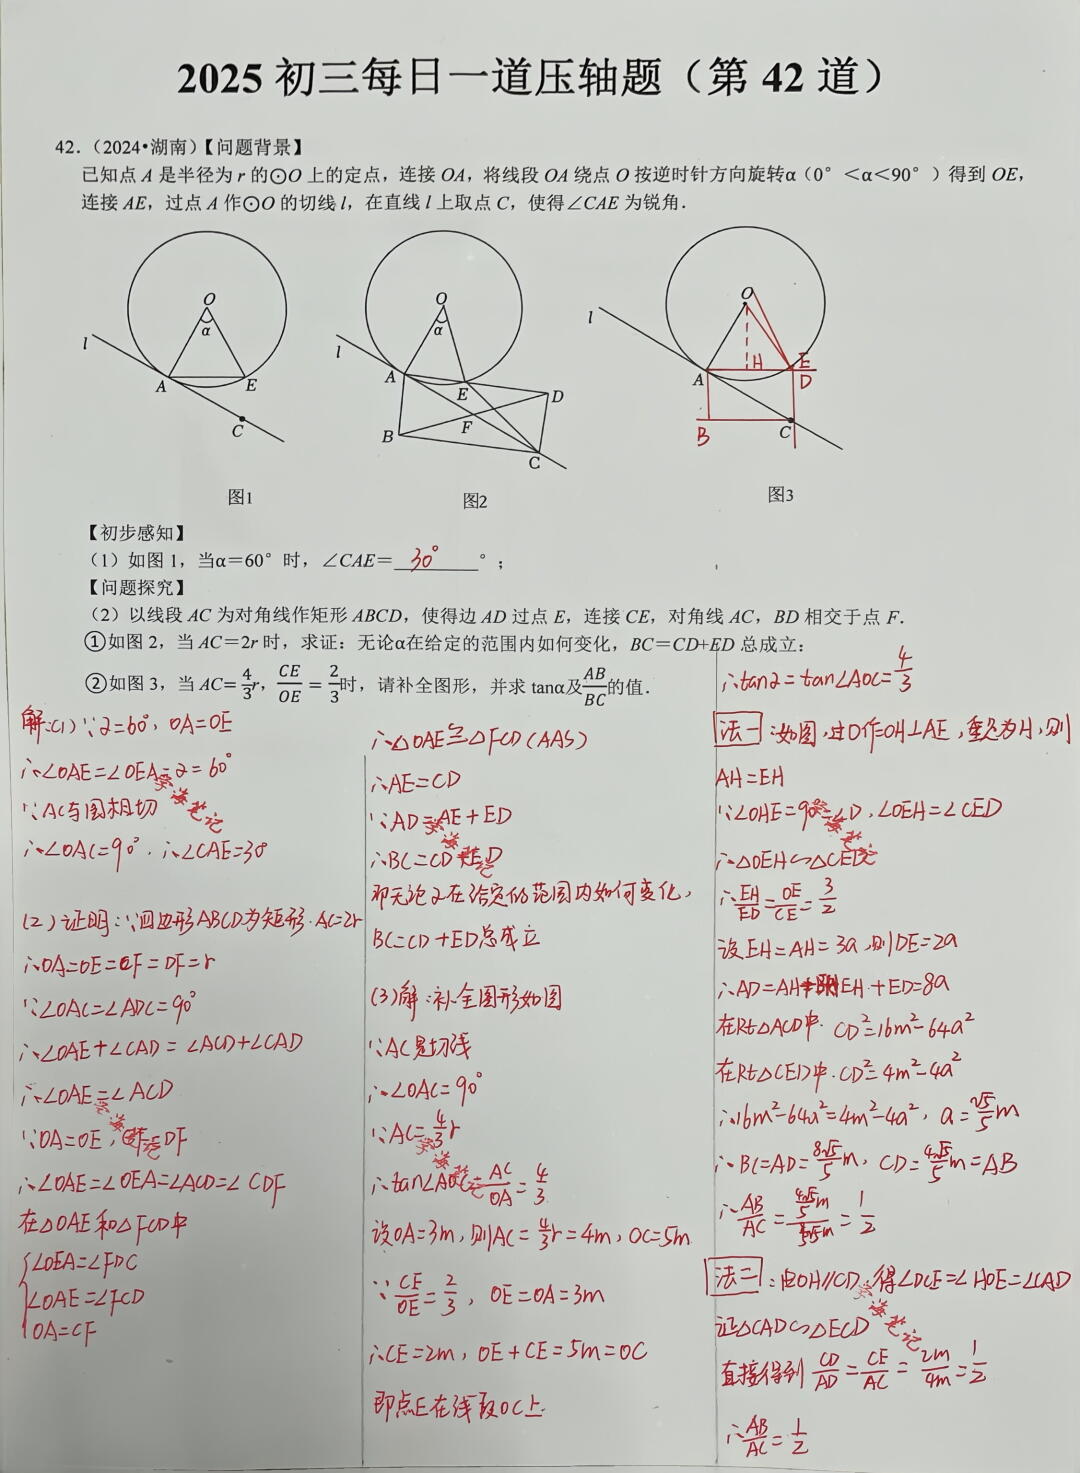 2025 初三每日一道压轴题（第 42 道）
42.（2024•湖南）【问题背景】
已知点 A 是半径为 r 的⊙O 上的定点，连接 OA，将线段 OA 绕点 O 按逆时针方向旋转α（0°＜α＜90°）得到 OE，
连接 AE，过点 A 作⊙O 的切线 l，在直线 l 上取点 C，使得∠CAE 为锐角．
O
α
l
A
E
C
图1
O
α
l
A
E
D
B
F
C
图2
O
l
H
E
A
D
B
C
图3
【初步感知】
（1）如图 1，当α＝60°时，∠CAE＝ 30° °；
【问题探究】
（2）以线段 AC 为对角线作矩形 ABCD，使得边 AD 过点 E，连接 CE，对角线 AC，BD 相交于点 F．
①如图 2，当 AC＝2r 时，求证：无论α在给定的范围内如何变化，BC＝CD+ED 总成立：
②如图 3，当 AC=4/3r，CE/OE=2/3时，请补全图形，并求 tanα及AB/BC的值．
解:(1)∵2=60°, OA=OE
∴∠OAE=∠OEA=2=60°
∵AC与圆相切
∴∠OAC=90°.∴∠CAE=30°
(2)证明:∵四边形ABCD为矩形.AC=2r
∴OA=OE=CF=DF=r
∵∠OAC=∠ADC=90°
∴∠OAE+∠CAD=∠ACD+∠CAD
∴∠OAE=∠ACD
∵OA=OE, CF=DF
∴∠OAE=∠OEA=∠ACD=∠CDF
在△OAE和△FCD中
∠OEA=∠FDC
∠OAE=∠FCD
OA=CF
∴△OAE≌△FCD(AAS)
∴AE=CD
∵AD=AE+ED
∴BC=CD+ED
即无论2在给定的范围内如何变化，
BC=CD+ED总成立
(3)解:补全图形如图
∵AC是切线
∴∠OAC=90°
∵AC=4/3r
∴tan∠AOC=AC/OA=4/3
设OA=3m,则AC=4/3r=4m, OC=5m
∵CE/OE=2/3, OE=OA=3m
∴CE=2m, OE+CE=5m=OC
即点E在线段OC上
∴tan2=tan∠AOC=4/3
法一:如图,过O作OH⊥AE,垂足为H,则
AH=EH
∵∠OHE=90°=∠D,∠OEH=∠CED
∴△OEH∽△CED
∴EH/ED=OE/CE=3/2
设EH=AH=3a,则DE=2a
∴AD=AH+EH+ED=8a
在Rt△ACD中. CD²=16m²-64a²
在Rt△CED中.CD²=4m²-4a²
∴16m²-64a²=4m²-4a², a=√5/5m
∴BC=AD=8√5/5m, CD=4√5/5m=AB
∴AB/AC=4√5/5m/8√5/5m=1/2
法二:由OH//CD,得∠DCE=∠HOE=∠CAD
证△CAD∽△ECD
直接得到CD/AD=CE/AC=2m/4m=1/2
∴AB/AC=1/2
学海笔记
学海笔记
学海笔记
学海笔记
学海笔记
学海笔记